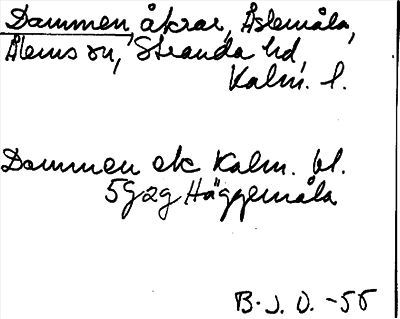 Dammen, åkrar, Åslemåla,
Ålems sn, Stranda hd,
Kalm. l.
Dammen ek Kalm. bl.
5G2g Häggemåla
B. J. O. -55